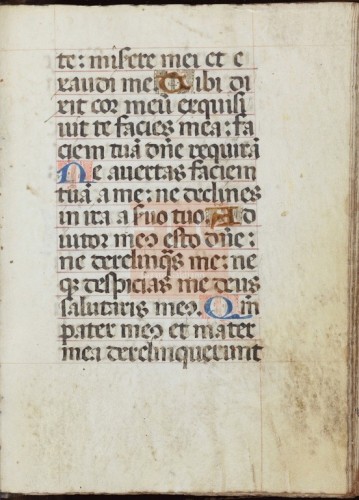 te: misere mei et e
xaudi me. Tibi di
xit cor meū exquisi
uit te facies mea: fa
ciem tuā dñe requirā
Ne auertas faciem
tuā a me: ne declines
in ira a seruo tuo. Ad
iutor meꝰ esto dñe:
ne derelinqs me: ne
qꝫ despicias me deus
salutaris meꝰ. Qm̄
pater meꝰ et mater
mea dereliquerunt